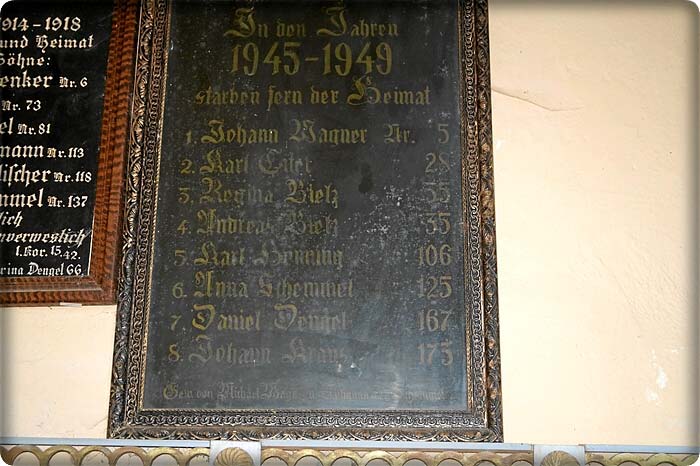 1914-1918
und Heimat
Söhne:
enker Nr. 6
Nr. 73
el Nr. 81
mann Nr. 113
lischer Nr. 118
mmel Nr. 137
lich
nverweslich
1. Kor. 15, 42.
rina Dengel 66
In den Jahren
1945-1949
starben fern der Heimat
1. Johann Wagner Nr. 5
2. Karl 28
3. Regina Bielz 35
4. Andreas Bielz 35
5. Karl Henning 106
6. Anna Schemmel 125
7. Daniel Dengel 167
8. Johann Kraus 175
Gew. von Michael